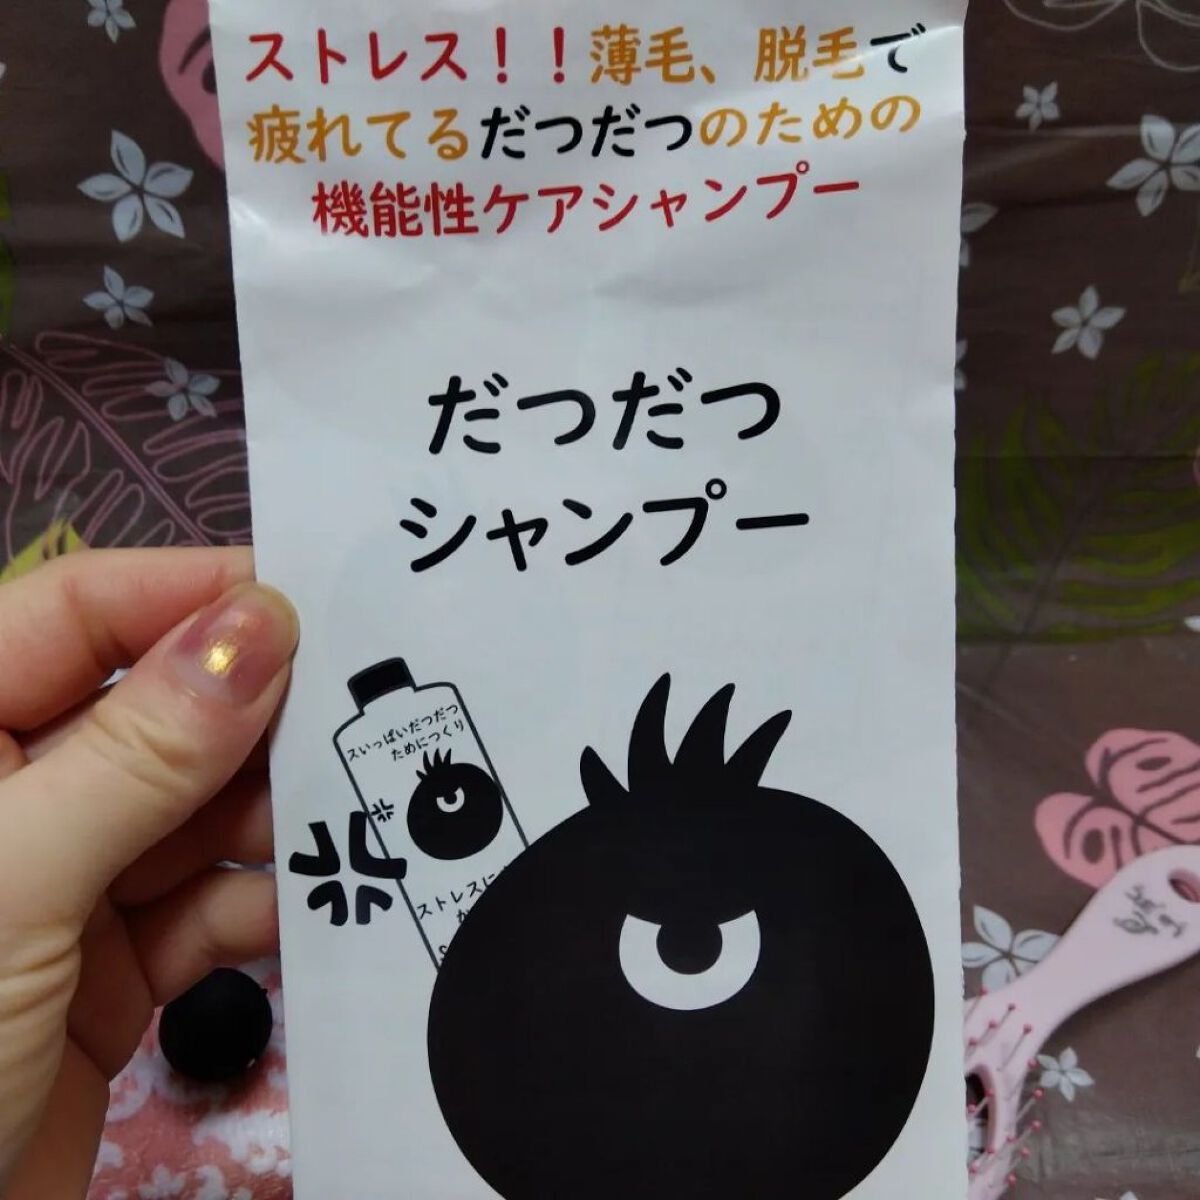 ストレス！！薄毛、脱毛で
疲れてるだつだつのための
機能性ケアシャンプー
だつだつ
シャンプー
スいっぱいだつだつ
ためにつくり
ストレスに